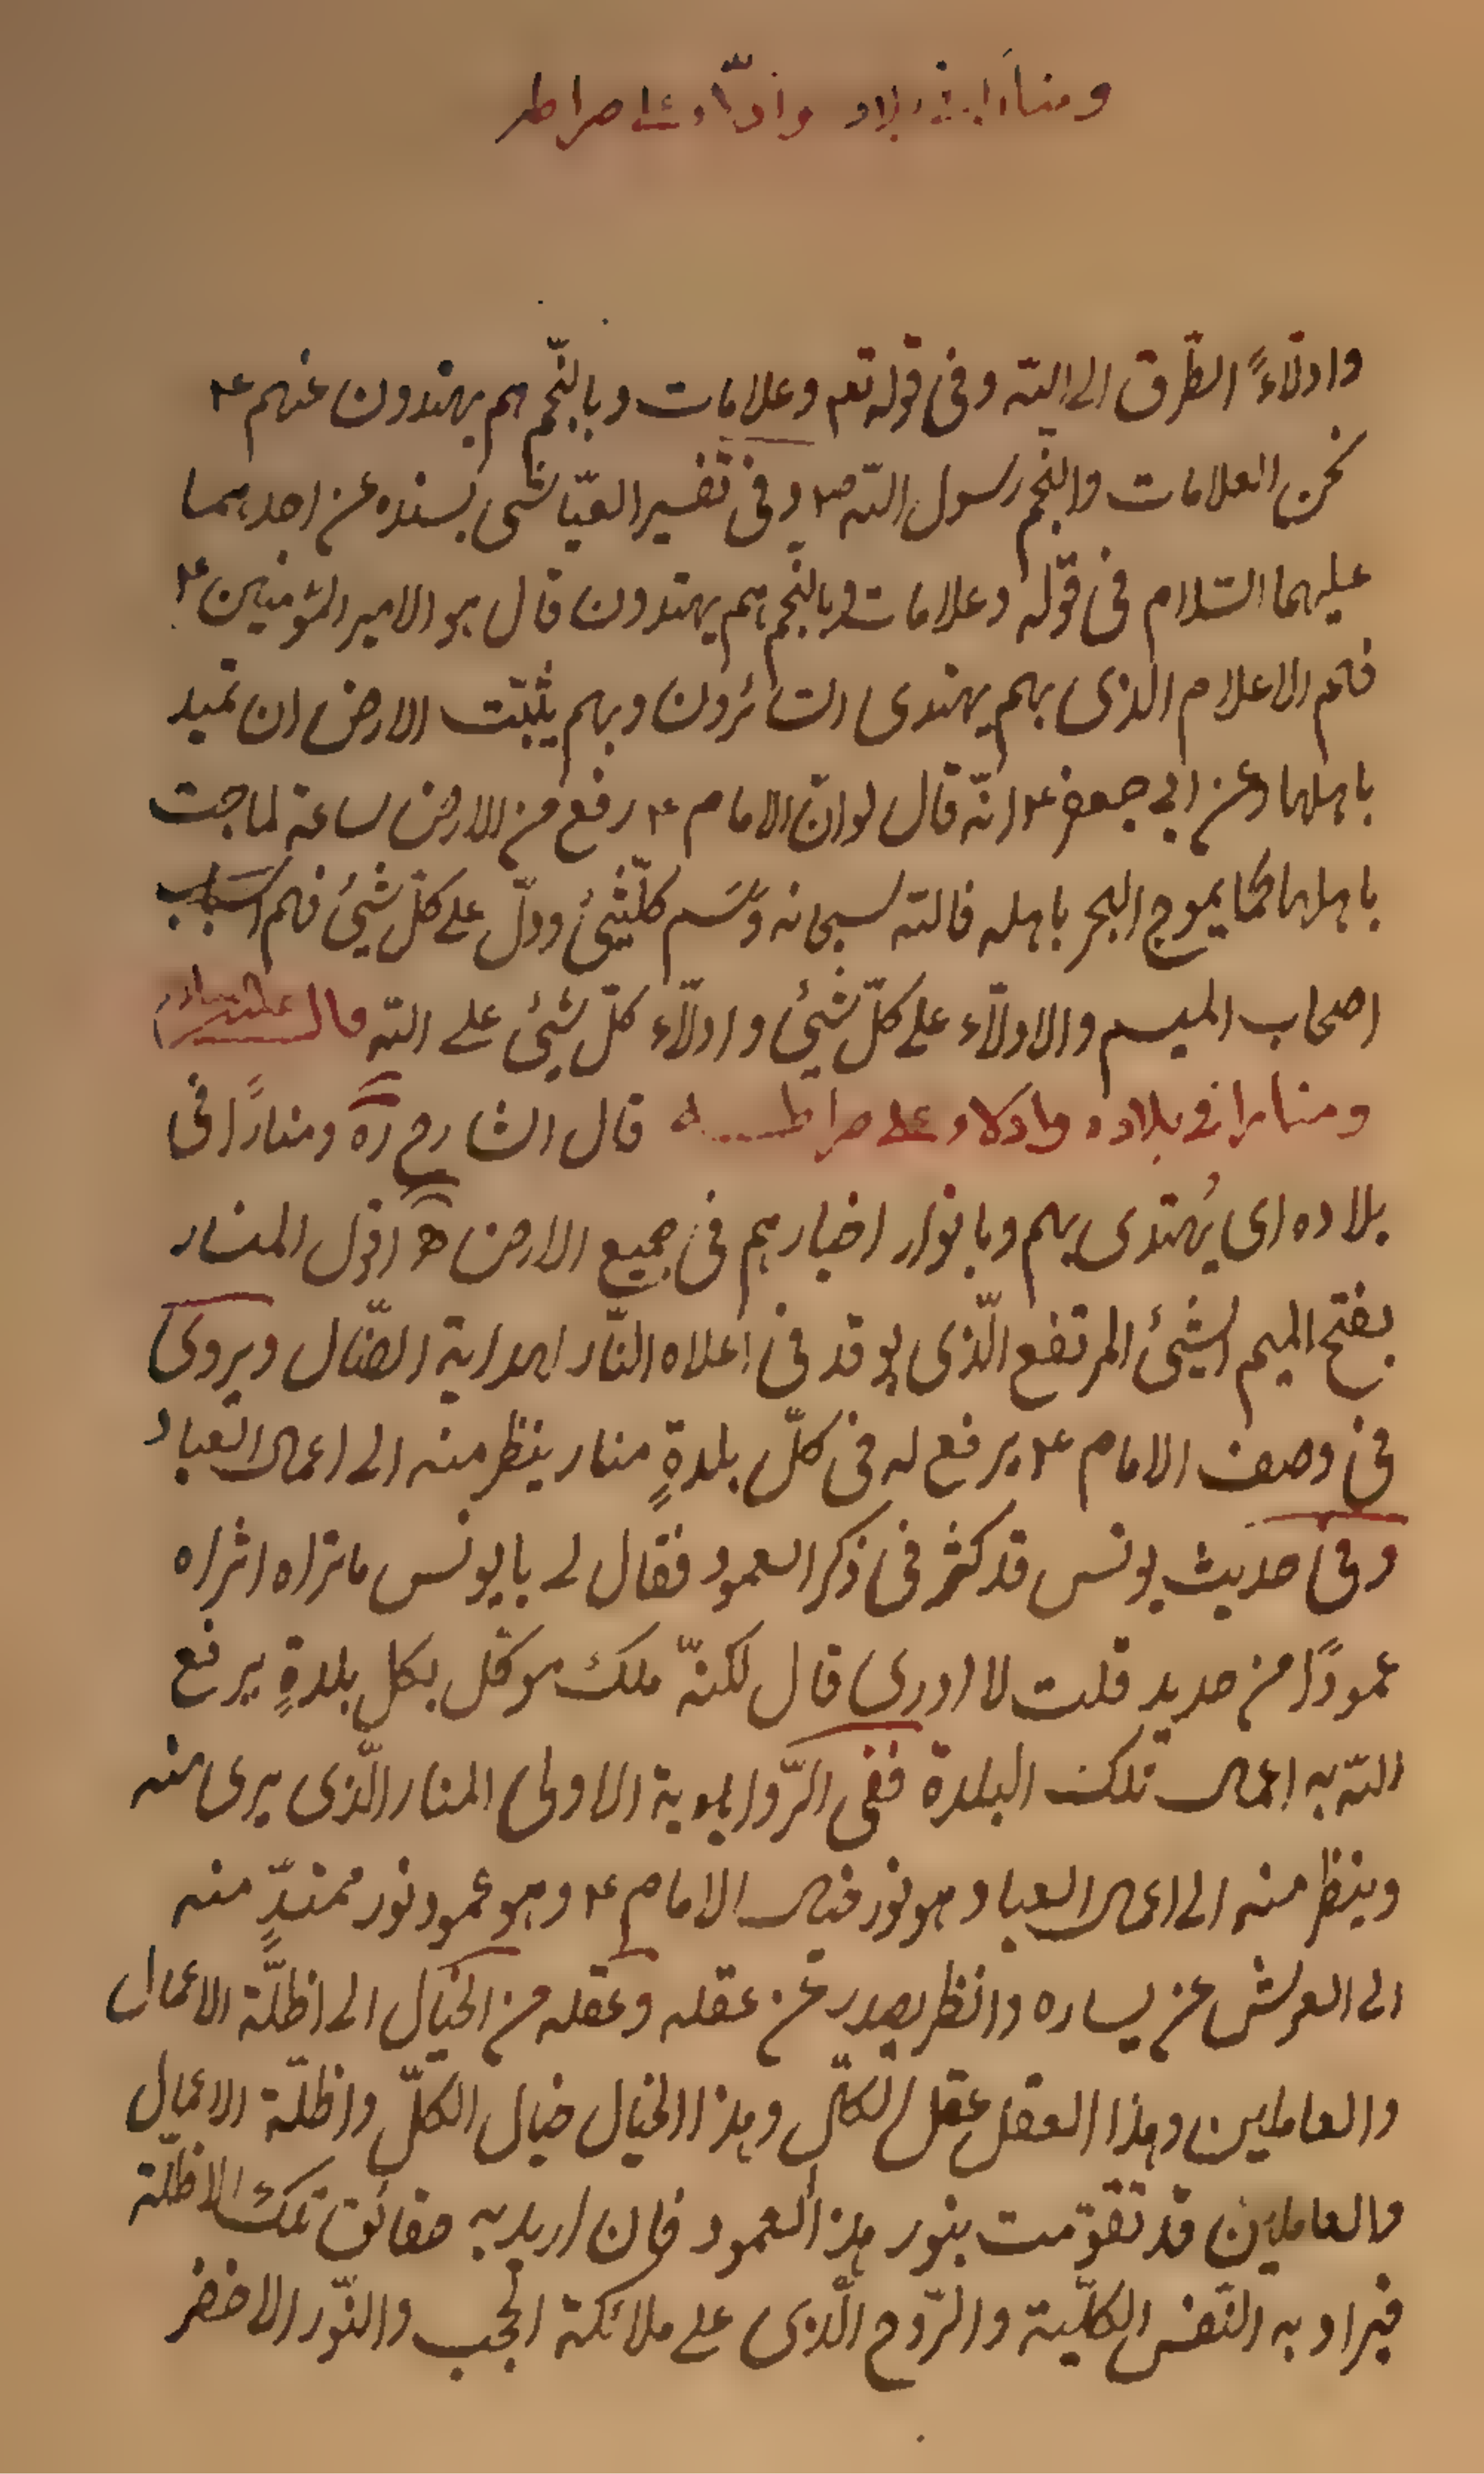 ومنارا فى بلاده وادلاء على صراطه
وادلاءً الطّرق الى الله وفى قوله تعم وعلامات وبالنّجم هم يهتدون عنهم ع
نحن العلامات والنجم رسول الله ص وفى تفسير العيّاشى بسنده عن احدهما
عليهما السّلام فى قوله وعلامات وبالنجم هم يهتدون قال هو الامير المؤمنين ع
فهم الاعلام الذى بهم يهتدى السّائرون وبهم يثبّت الارض ان تميد
باهلها وعن ابى جعفر ع انّه قال لو انّ الامام ع رفع من الارض ساعة لماجت
باهلها كما يموج البحر باهله فالله سبحانه وَسَم كلّشئ ودلّ على كلّ شيئ فهم اسباب
اصحاب الميسم والادلّاء على كلّ شيئ وادلّاء كلّ شيئ على الله قال
ومنارا فى بلاده وادلاء على صراطـــه قال الشارح ره ومنارًا فى
بلاده اى يُهتدى بهم وبانوار اخبارهم فى جميع الارض اقول المنار
بفتح الميم الشيئ المرتفع الّذى يوقد فى اعلاه النّار لهداية الضّال ويروى
فى وصف الامام ع يرفع له فى كلّ بلدةٍ منار ينظر منه الى اعمال العباد
وفى حديث يونس قد كثر فى ذكر العمود فقال لى يا يونس ما تراه اتراه
عمودًا من حديد قلت لا ادرى قال لكنّه ملك موكّل بكل بلدةٍ يرفع
الله به اعمال تلك البلدة ففى الرّوايوية الاولى المنار الّذى يرى منه
وينظر منه الى اعمال العباد هو نور خيال الامام ع وهو عمود نور ممتدٍّ منه
الى العرش عن يساره وانظر يصدر عن عقله وعقله من الخيال الى اظلّة الاعمال
والعاملين وهذا العقل عقل الكلّ وهذا الخيال خيال الكلّ واظلّة الاعمال
والعاملين قد تقوّمت بنور هذا العمود فان اريد به حقائق تلك الاظلّة
فيراد به النّفس الكلّية والرّوح الّذى على ملائكة الحجب والنّور الاخضر